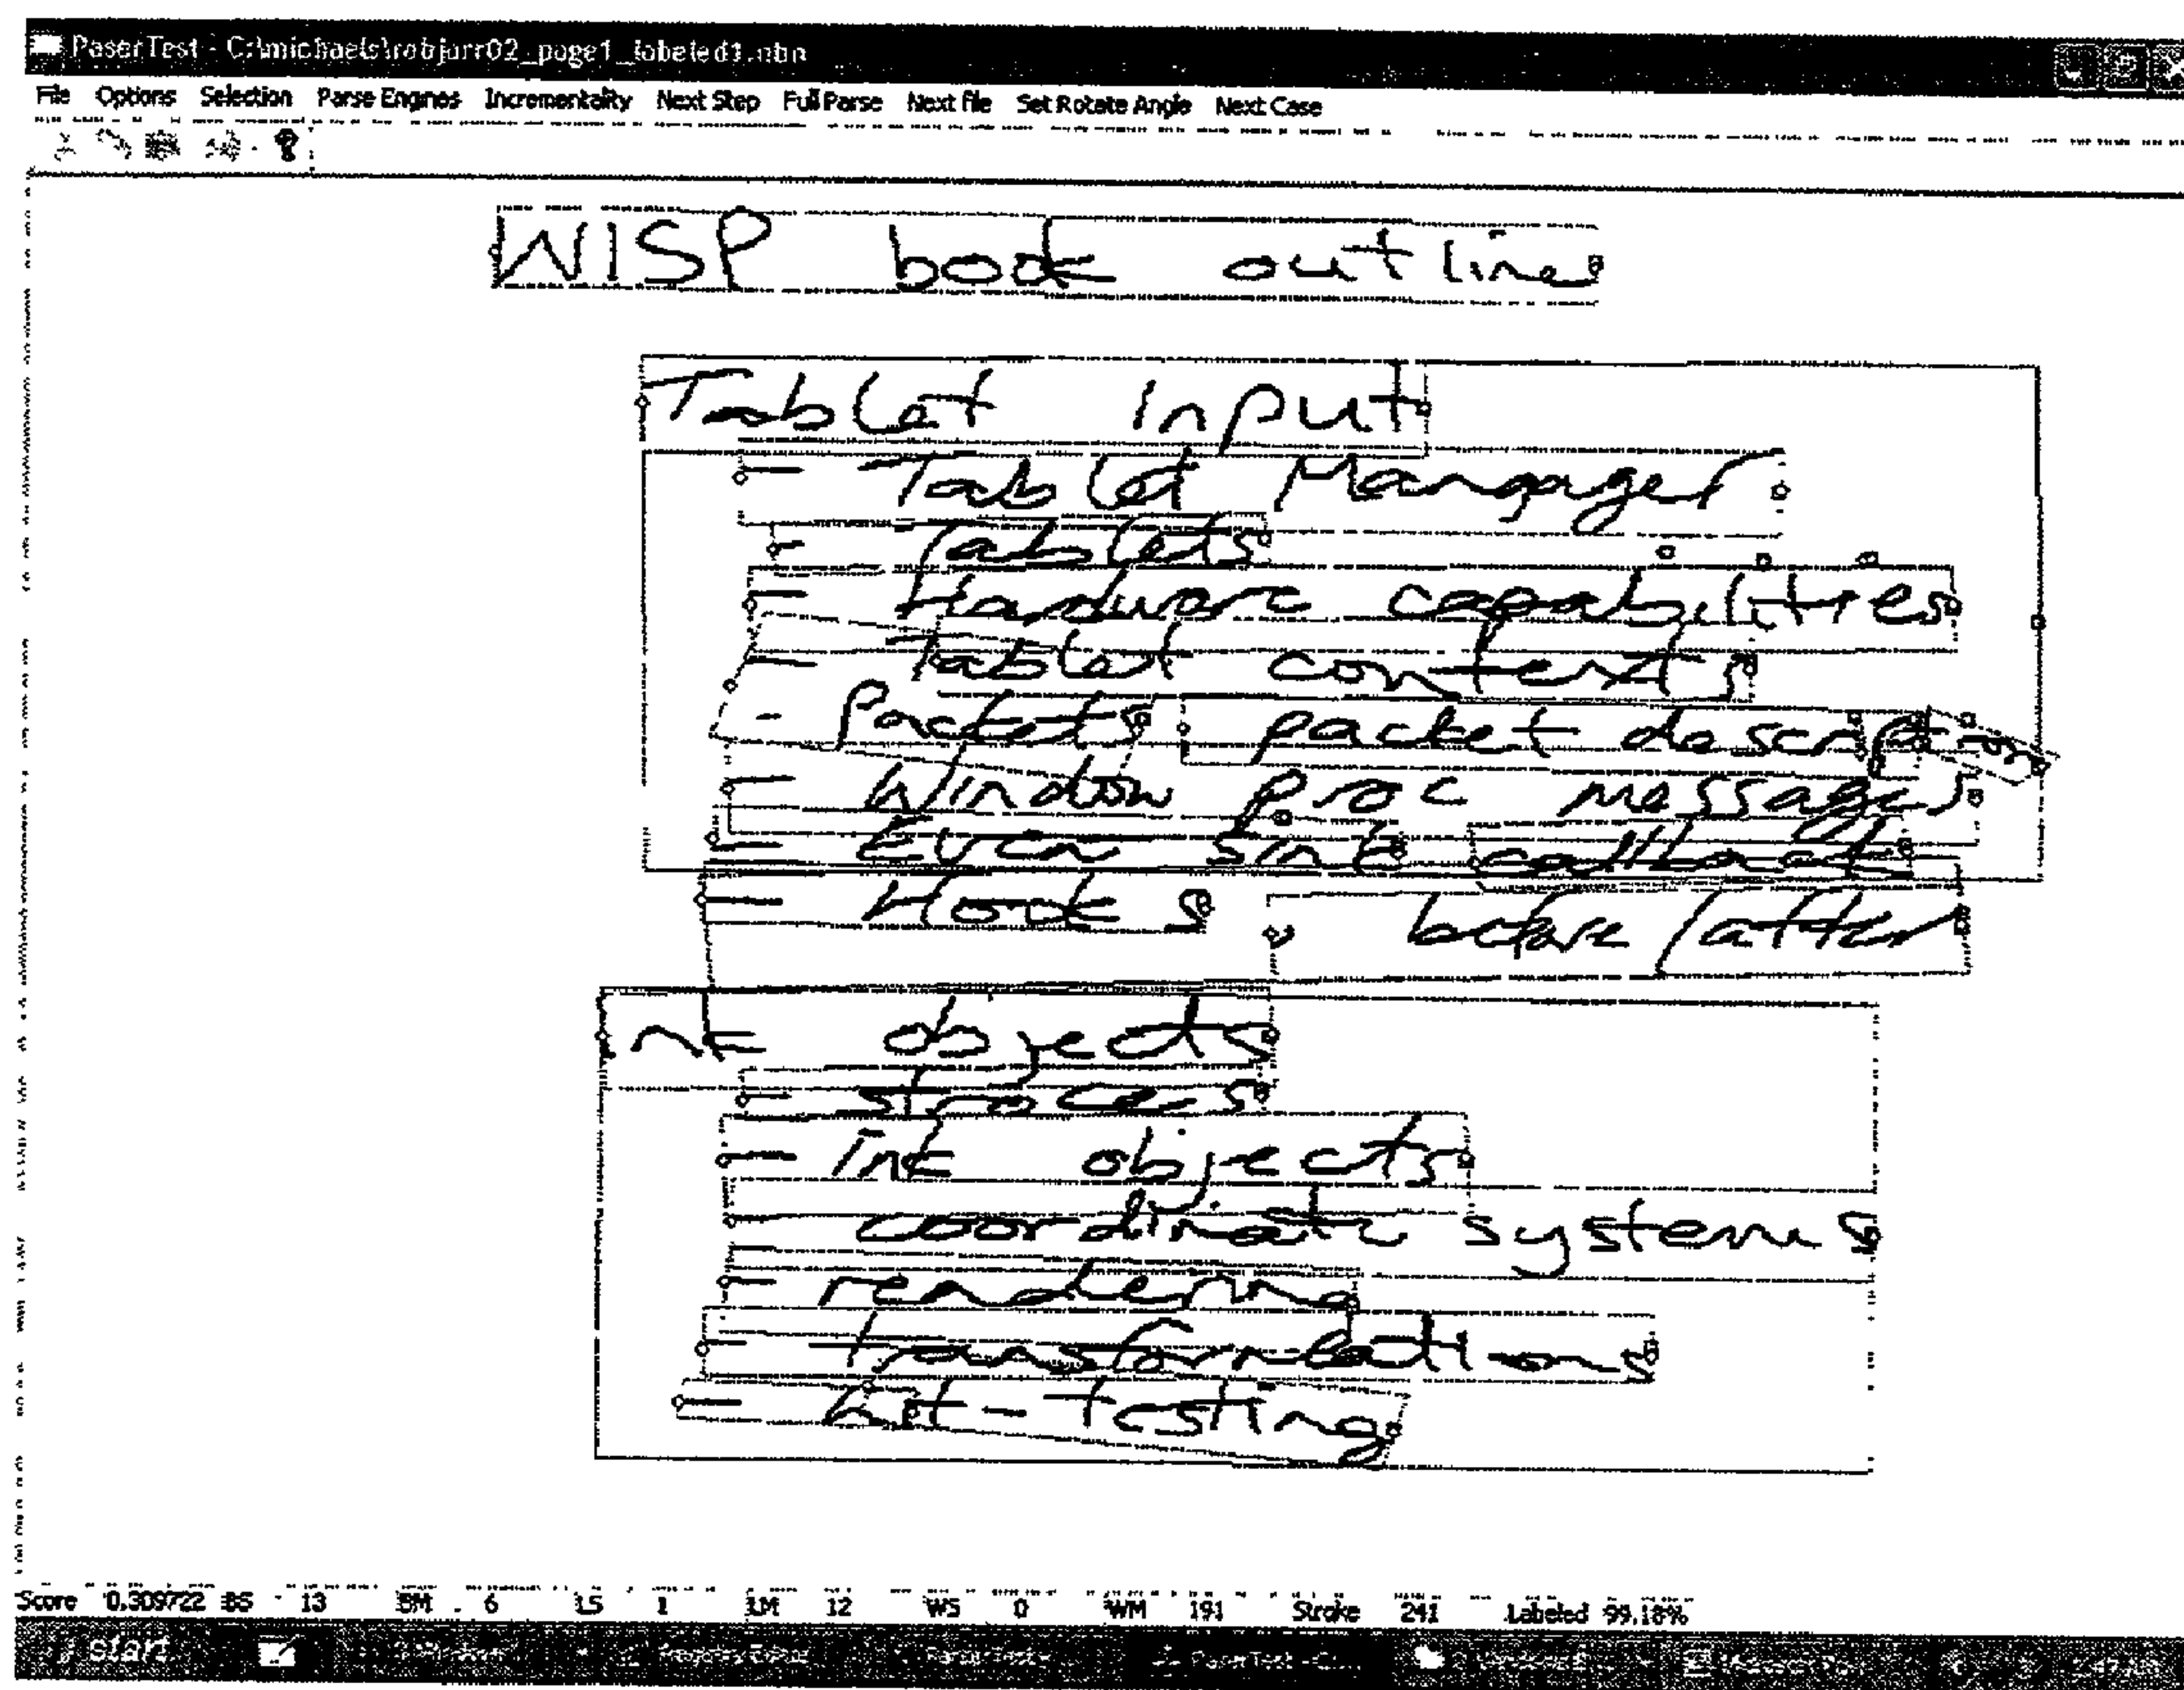 PaserTest - C:\michaels\robjarr02_page1_labeled1.nbn
File Options Selection Parse Engines Incrementality Next Step Full Parse Next file Set Rotate Angle Next Case
WISP book outline
Tablet Input
- Tablet Mangager
- Tablets
- Hardware capabilities
- Tablet contexts
- Packets packet description
- Window proc messages
- Even sink callback
- Hooks before/after
Ink objects
- strokes
- Ink objects
- coordinate systems
- rendering
- transformations
- Hit-testing
Score 0.309722 BS 13 BM 6 LS 1 LM 12 WS 0 WM 191 Stroke 241 Labeled 99.18%
start